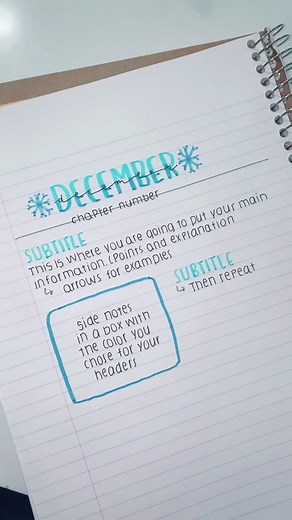 DECEMBER
december
chapter number
SUBTITLE
This is where you are going to put your main
information. (Points and explanation
↳ arrows for examples
SUBTITLE
↳ Then repeat
side notes
in a box with
the color you
chose for your
headers